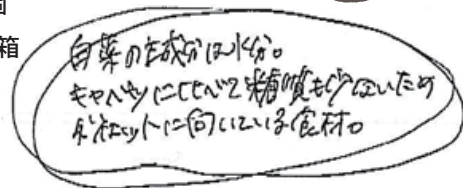 箱
白菜の主成分は水分。
キャベツに比べて糖質も少ないため
ダイエットに向いている食材。